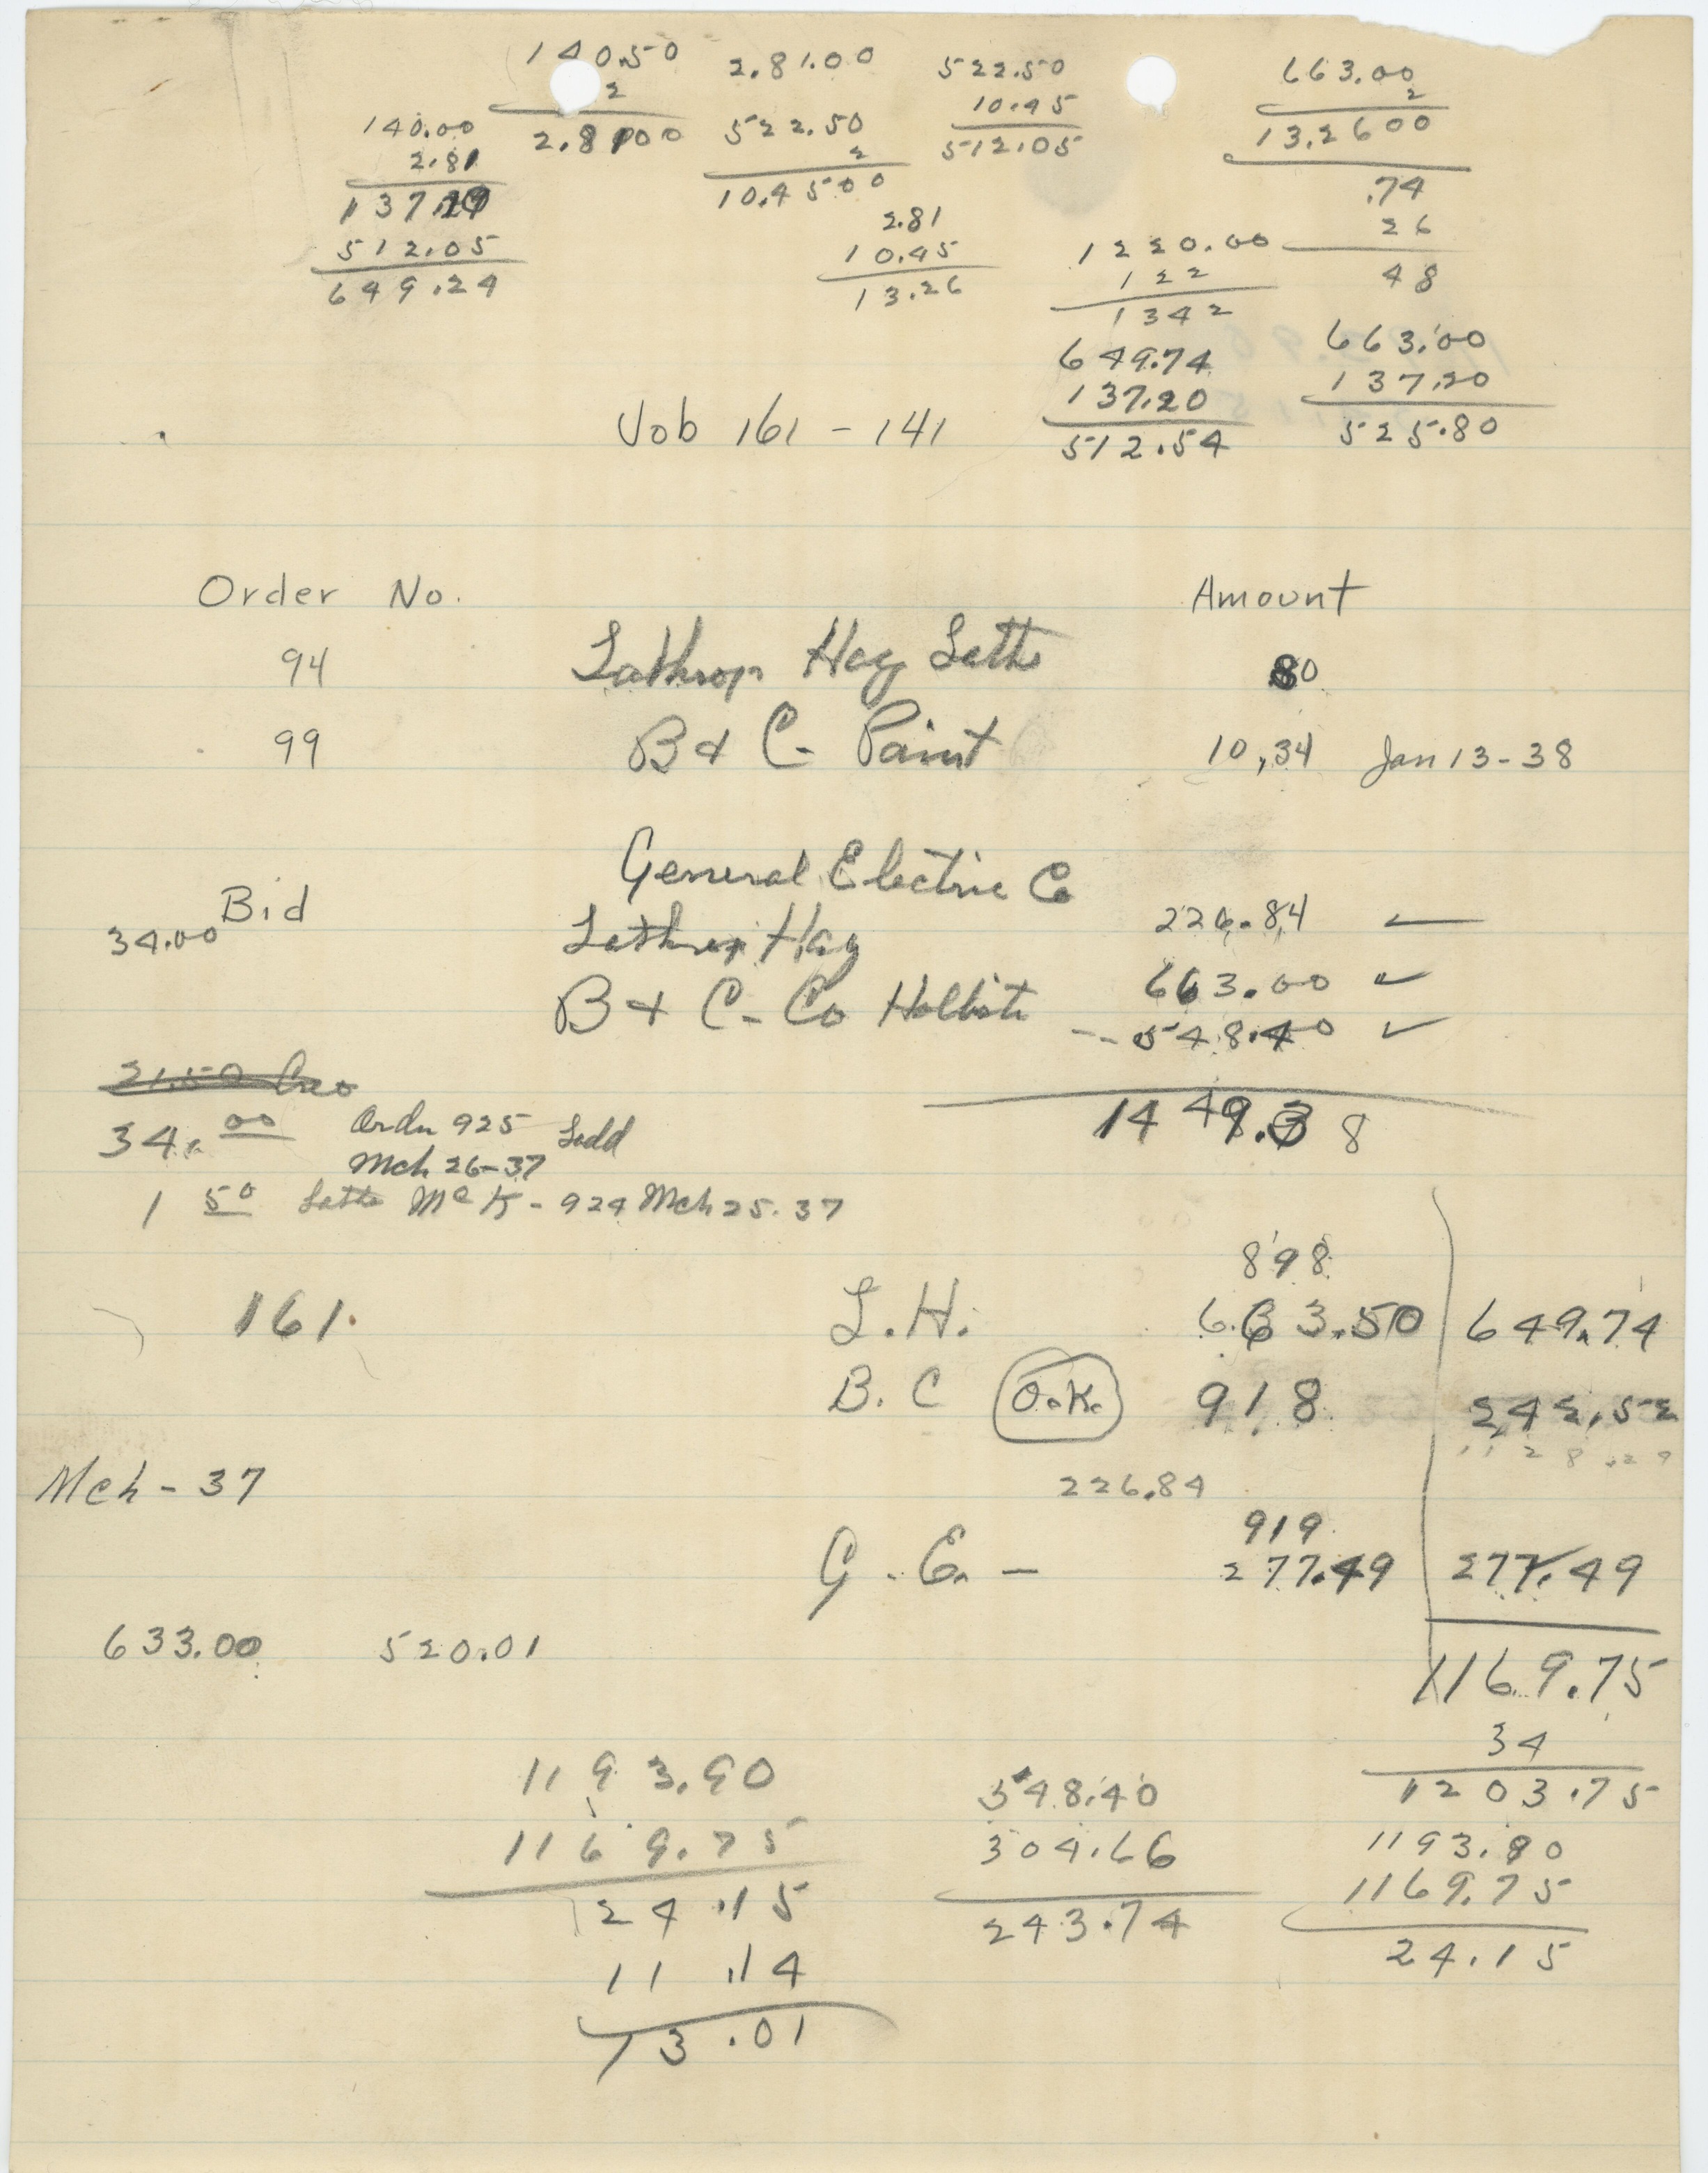 140.50 2.81.00 522.50 663.00
2 10.45 2
140.00 2.8100 522.50 512.05 13.2600
2.81 2 .74
137.19 10.4500 26
512.05 2.81 1220.00 48
649.24 10.45 122
13.26 1342
649.74 663.00
137.20 137.20
512.54 525.80
Job 161 - 141
Order No. Amount
94 Lathrop Hay Lath 80
99 B & C - Paint 10,34 Jan 13-38
General Electric Co 226.84
Bid
34.00 Lathrop Hay 663.00 ✓
B & C - Co -- 548.40 ✓
21.50
34.00 Order 925 Ladd 1449.38
Mch 26-37
1 50 Lath Mc K - 924 Mch 25.37
898
161. L.H. 663.50 649.74
B.C O.K. 918 242.52
1128.29
Mch - 37 226.84
919
G.E. - 277.49 277.49
633.00 520.01
1169.75
34
1193.90 348.40 1203.75
1169.75 304.66 1193.90
24.15 243.74 1169.75
11.14 24.15
13.01